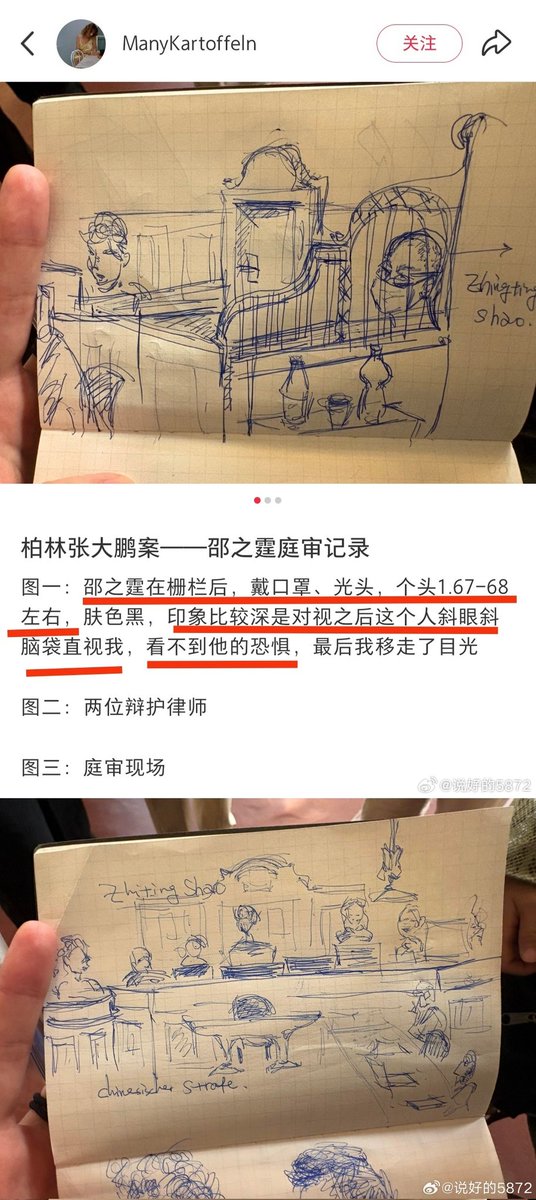 ManyKartoffeln
关注
Zhingting
Shao.
柏林张大鹏案——邵之霆庭审记录
图一：邵之霆在栅栏后，戴口罩、光头，个头1.67-68
左右，肤色黑，印象比较深是对视之后这个人斜眼斜
脑袋直视我，看不到他的恐惧，最后我移走了目光
图二：两位辩护律师
图三：庭审现场
@说好的5872
Zhiting Shao
chinesischer Strafe.
@说好的5872